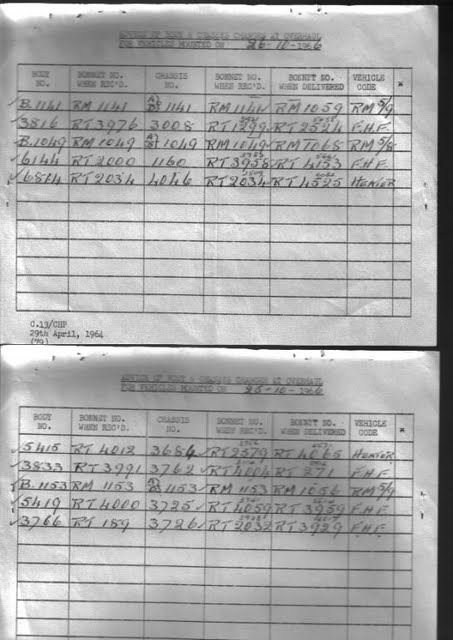 ADVICE OF BODY & CHASSIS CHANGES AT OVERHAUL
FOR VEHICLES MOUNTED ON 26-10-1966
BODY NO. BONNET NO. WHEN REC'D. CHASSIS NO. BONNET NO. WHEN REC'D. BONNET NO. WHEN DELIVERED VEHICLE CODE *
B.1141 RM 1141 1141 RM 1141 RM 1059 RM 5/9
3816 RT 3976 3008 RT 1299 RT 2524 F.H.F.
B.1049 RM 1049 1049 RM 1049 RM 1068 RM 5/8
6144 RT 2000 1160 RT 3958 RT 4153 F.H.F.
6814 RT 2034 4046 RT 2034 RT 4525 HEATER
C.13/CHP
29th April, 1964
ADVICE OF BODY & CHASSIS CHANGES AT OVERHAUL
FOR VEHICLES MOUNTED ON 25-10-1966
BODY NO. BONNET NO. WHEN REC'D. CHASSIS NO. BONNET NO. WHEN REC'D. BONNET NO. WHEN DELIVERED VEHICLE CODE *
5415 RT 4012 3684 RT 2579 RT 4065 HEATER
3833 RT 3991 3762 RT 4004 RT 271 F.H.F.
B.1153 RM 1153 1153 RM 1153 RM 1056 RM 5/9
5419 RT 4000 3725 RT 4059 RT 3959 F.H.F.
3766 RT 189 3726 RT 2032 RT 3929 F.H.F.